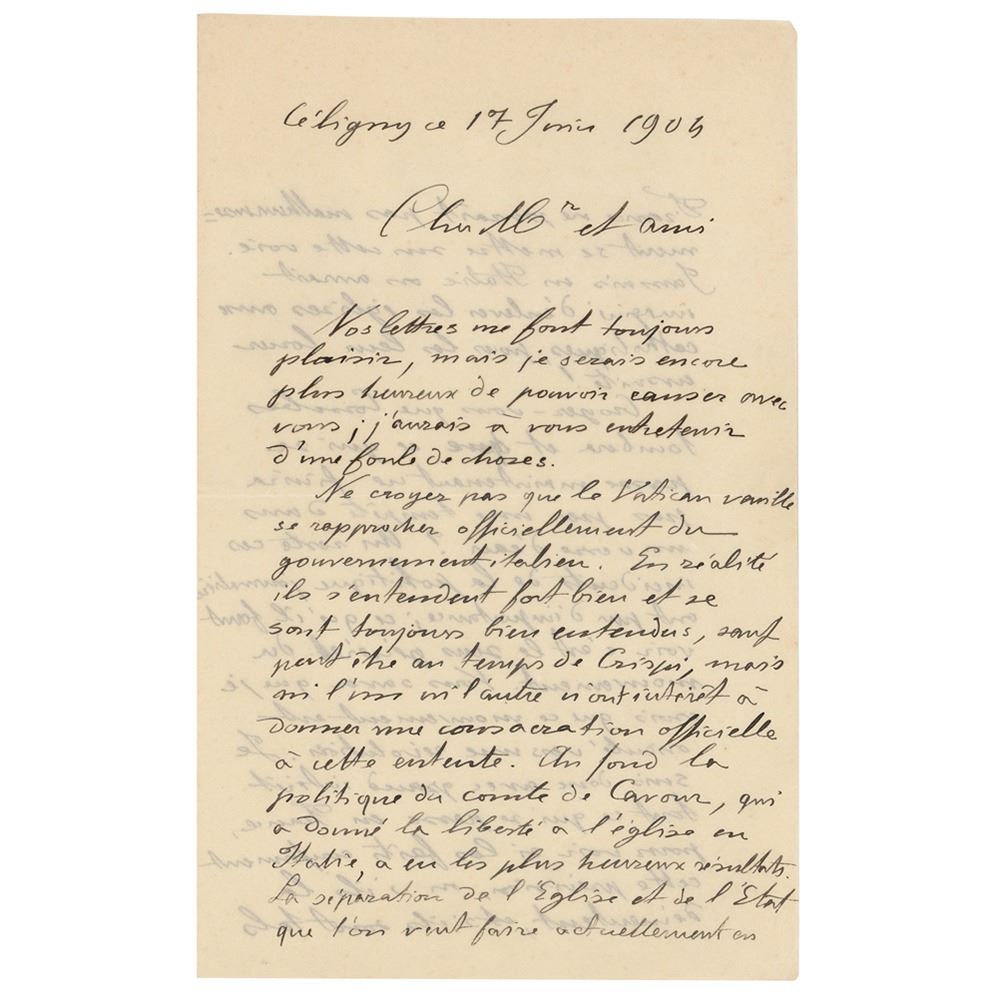 Céligny ce 17 Juin 1904
Cher Mr et ami
Vos lettres me font toujours
plaisir, mais je serais encore
plus heureux de pouvoir causer avec
vous ; j'aurais à vous entretenir
d'une foule de choses.
Ne croyez pas que le Vatican veuille
se rapprocher officiellement du
gouvernement italien. En réalité
ils s'entendent fort bien et se
sont toujours bien entendus, sauf
peut être au temps de Crispi, mais
ni l'un ni l'autre n'ont intérêt à
donner une consacration officielle
à cette entente. Au fond la
politique du comte de Cavour, qui
a donné la liberté à l'église en
Italie, a eu les plus heureux résultats.
La séparation de l'Eglise et de l'Etat
que l'on veut faire actuellement en